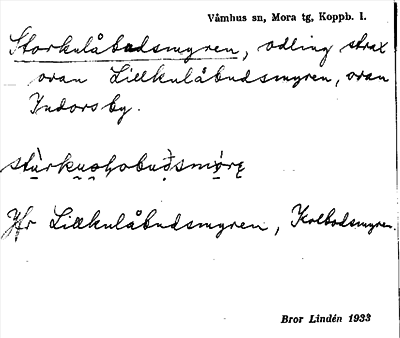 Våmhus sn, Mora tg, Koppb. l.
Storkulåbudsmyren, odling strax
ovan Lillkulåbudsmyren, ovan
Indorsby.
Jfr Lillkulåbudsmyren, Kolbodsmyren.
Bror Lindén 1933